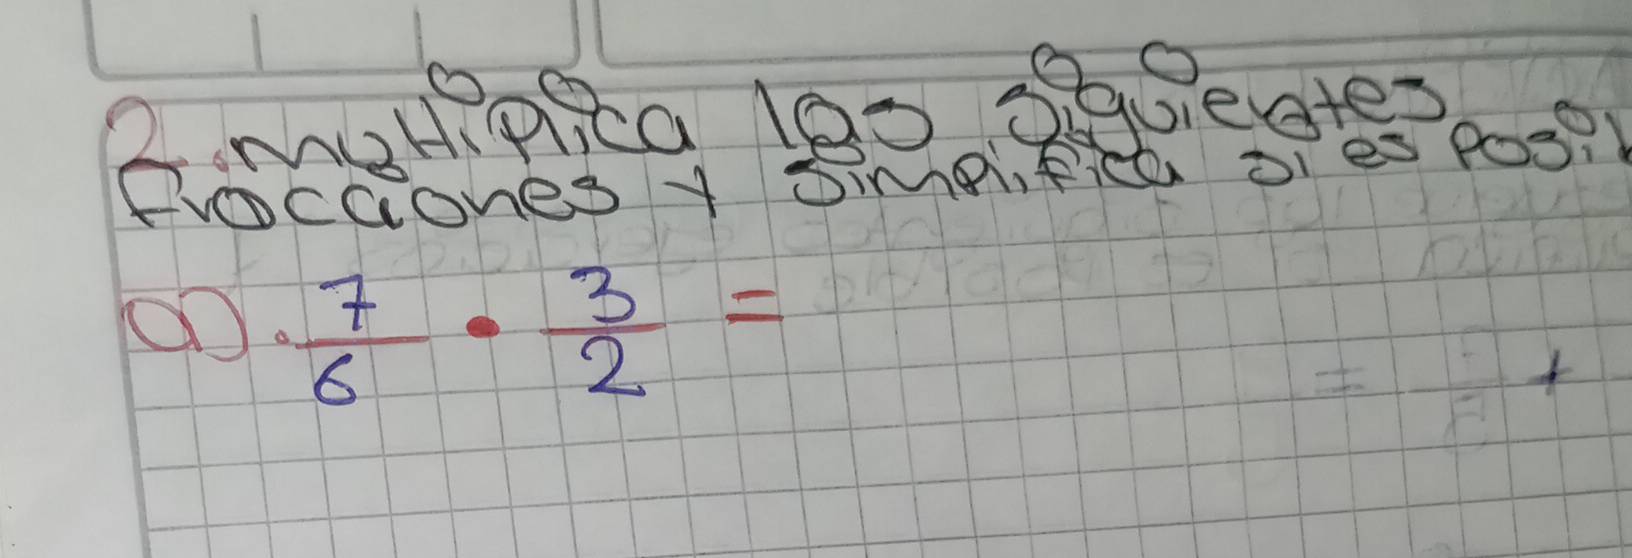 2. multiplica las siguientes
fracciones y simplifica si es posi
a). 7/6 • 3/2 =